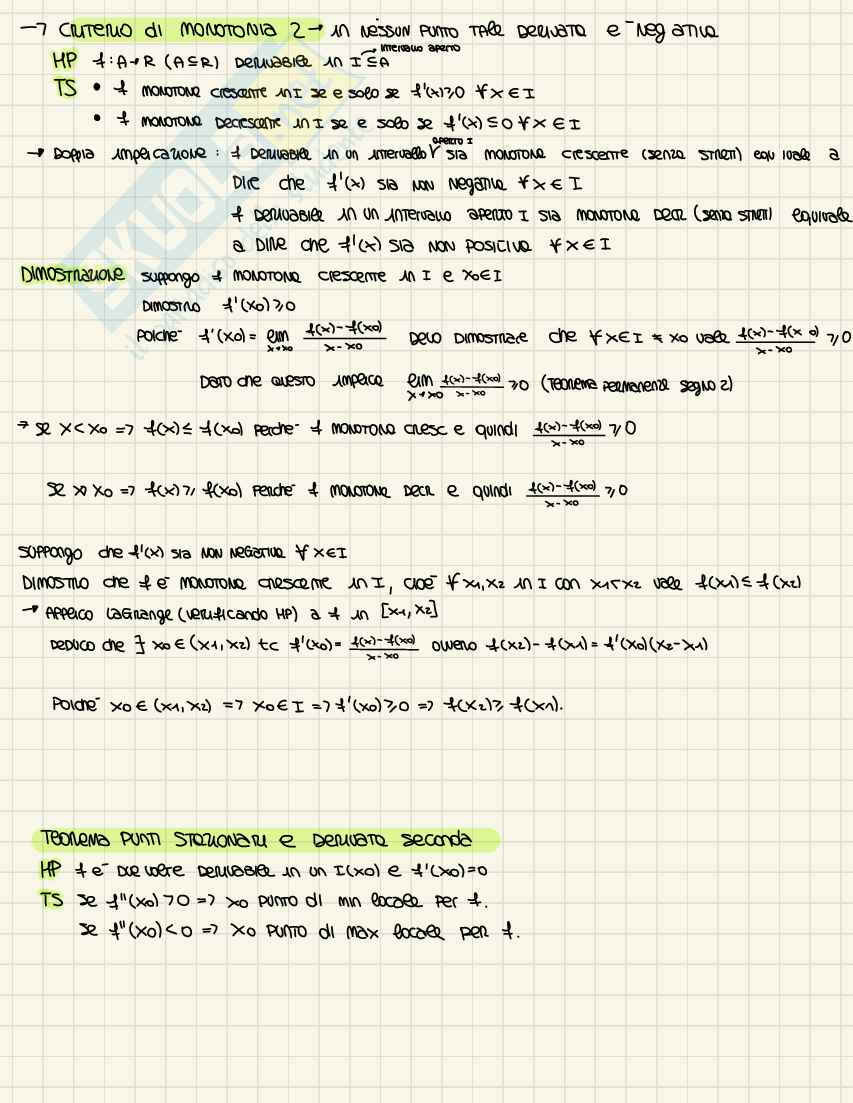 → CRITERIO di MONOTONIA 2 → in NESSUN PUNTO TALE DERIVATA è NEGATIVA
HP f: A→R (A⊆R) DERIVABILE in I ⊆ A → intervallo aperto
TS • f MONOTONA CRESCENTE in I se e solo se f'(x)≥0 ∀x∈I
• f MONOTONA DECRESCENTE in I se e solo se f'(x)≤0 ∀x∈I
→ Doppia implicazione: f DERIVABILE in un intervallo aperto I sia MONOTONA CRESCENTE (senza STRETT) equivale a
DIRE che f'(x) sia NON Negativa ∀x∈I
f DERIVABILE in un intervallo aperto I sia MONOTONA DECR (senza STRETT) equivale
a DIRE che f'(x) sia NON POSITIVA ∀x∈I
DIMOSTRAZIONE suppongo f MONOTONA CRESCENTE in I e x0∈I
DIMOSTRO f'(x0)≥0
POICHÈ f'(x0)= lim x→x0 f(x)-f(x0)/x-x0 DEVO DIMOSTRARE che ∀x∈I ≠ x0 vale f(x)-f(x0)/x-x0 ≥0
DATO che questo implica lim x→x0 f(x)-f(x0)/x-x0 ≥0 (TEOREMA PERMANENZA SEGNO 2)
→ se x<x0 => f(x)≤ f(x0) perchè f MONOTONA CRESC e quindi f(x)-f(x0)/x-x0 ≥0
se x>x0 => f(x)≥ f(x0) perchè f MONOTONA DECR e quindi f(x)-f(x0)/x-x0 ≥0
SUPPONGO che f'(x) sia NON NEGATIVA ∀x∈I
DIMOSTRO che f è MONOTONA CRESCENTE in I, cioè ∀x1,x2 in I con x1<x2 vale f(x1)≤f(x2)
→ APPLICO LAGRANGE (verificando HP) a f in [x1,x2]
DEDUCO che ∃ x0∈(x1,x2) tc f'(x0)= f(x)-f(x0)/x-x0 ovvero f(x2)-f(x1)=f'(x0)(x2-x1)
Poichè x0∈(x1,x2) => x0∈I => f'(x0)≥0 => f(x2)≥ f(x1).
TEOREMA PUNTI STAZIONARI e DERIVATA seconda
HP f è DUE volte DERIVABILE in un I(x0) e f'(x0)=0
TS se f"(x0)>0 => x0 punto di min locale per f.
se f"(x0)<0 => x0 punto di max locale per f.